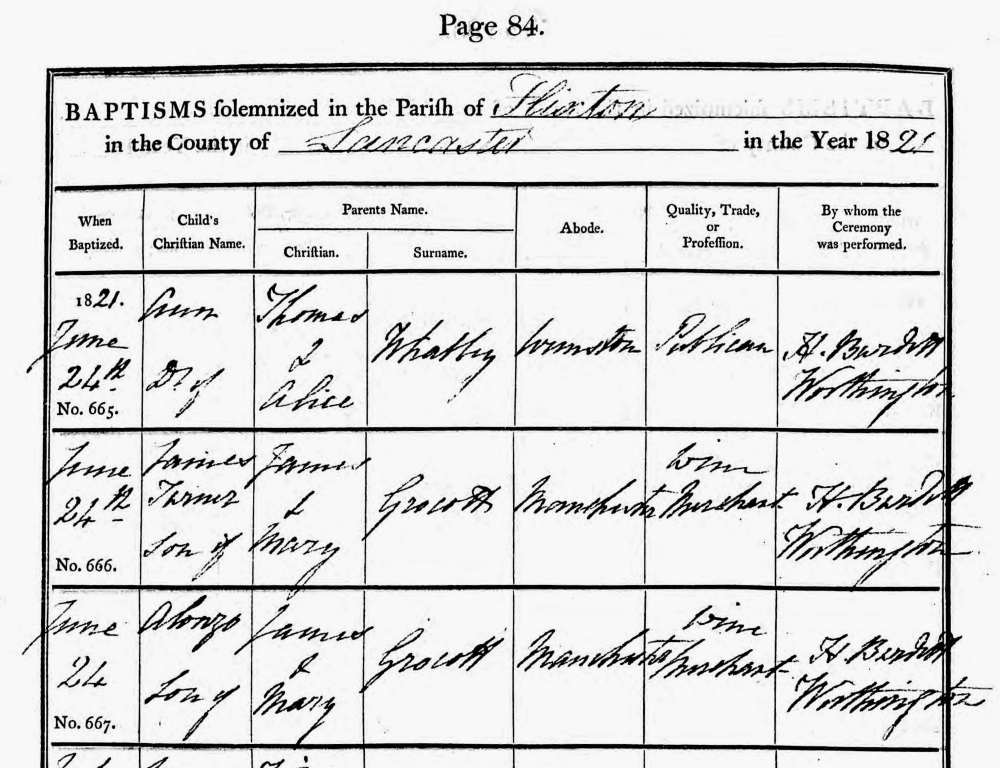 Page 84.
BAPTISMS ſolemnized in the Pariſh of Flixton
in the County of Lancaster in the Year 1821
When
Baptized.
Child's
Chriſtian Name.
Parents Name.
Chriſtian.
Surname.
Abode.
Quality, Trade,
or
Profeſſion.
By whom the
Ceremony
was performed.
1821.
June
24th
No. 665.
Ann
Dr of
Thomas
&
Alice
Urmston
Publican
H. Burditt
Worthington
June
24th
No. 666.
James
Turner
Son of
James
&
Mary
Grocott
Manchester
Wine
Merchant
H. Burditt
Worthington
June
24
No. 667.
Alonzo
Son of
James
&
Mary
Grocott
Manchester
Wine
Merchant
H. Burditt
Worthington